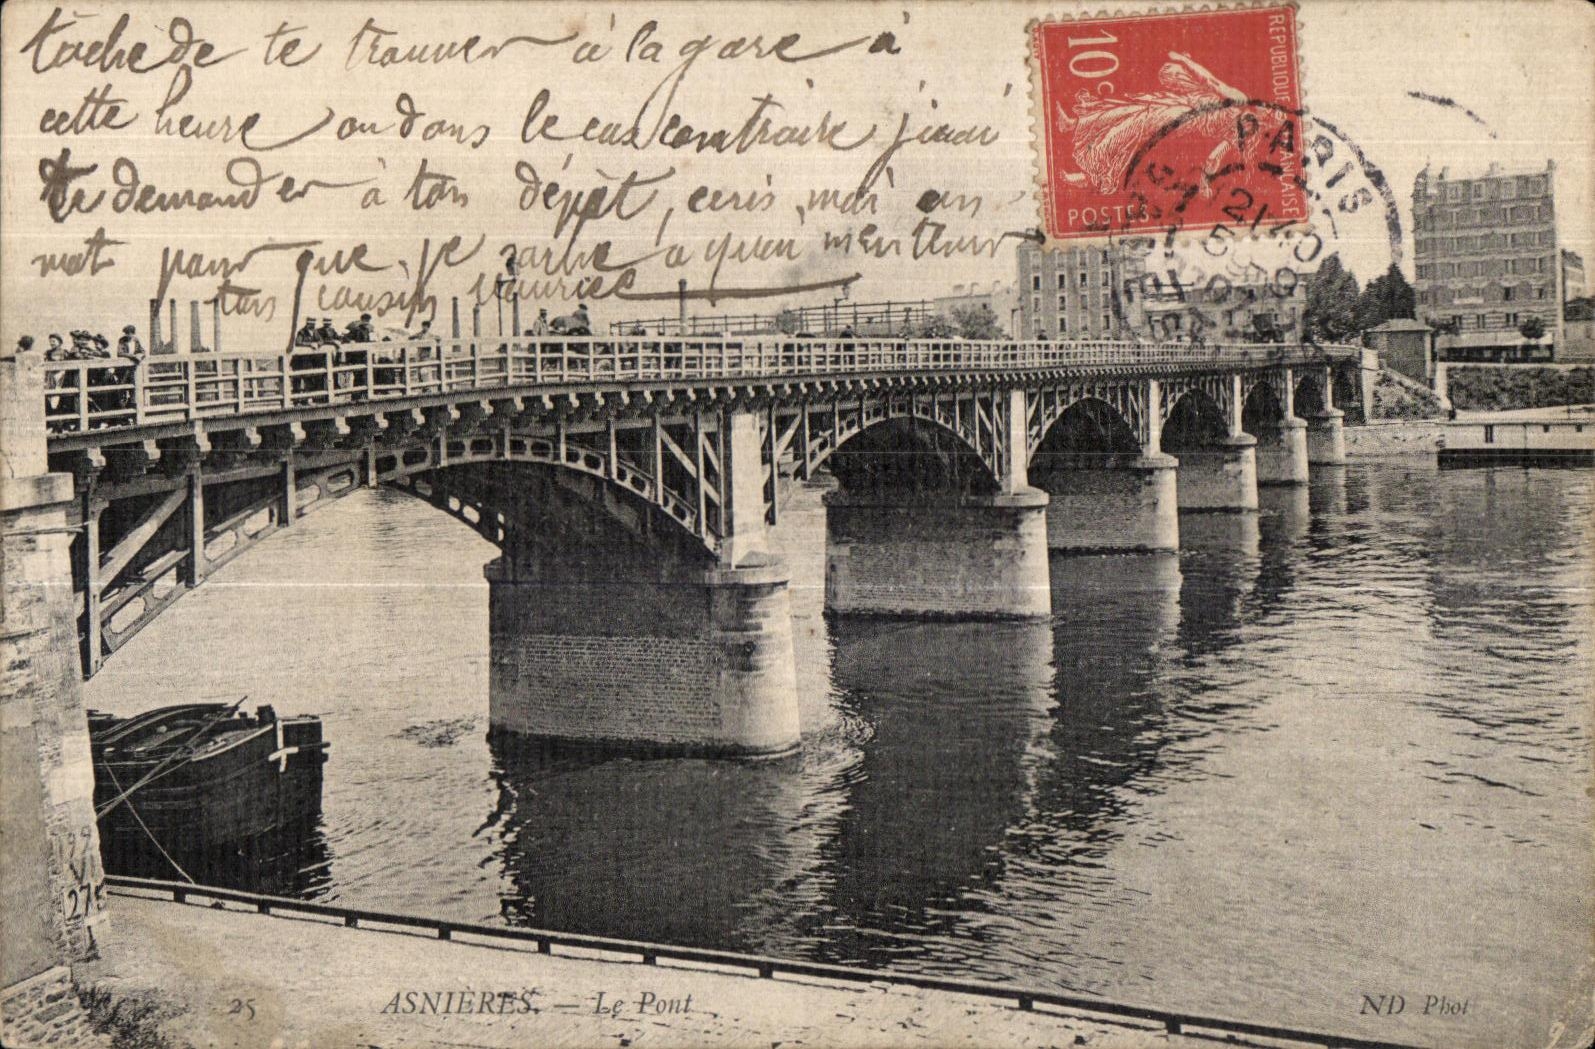 tâche de te trouver à la gare à
cette heure ou dans le cas contraire j'irai
te demander à ton dépôt, ecris moi un
mot pour que je sache a quoi m'en tenir
ton cousin Maurice
10c
REPUBLIQUE FRANÇAISE
POSTES
PARIS
27
25 ASNIÈRES. — Le Pont ND Phot